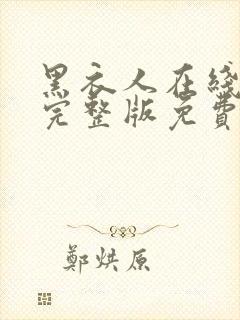 黑衣人在綫
完整版免費
鄭烘原